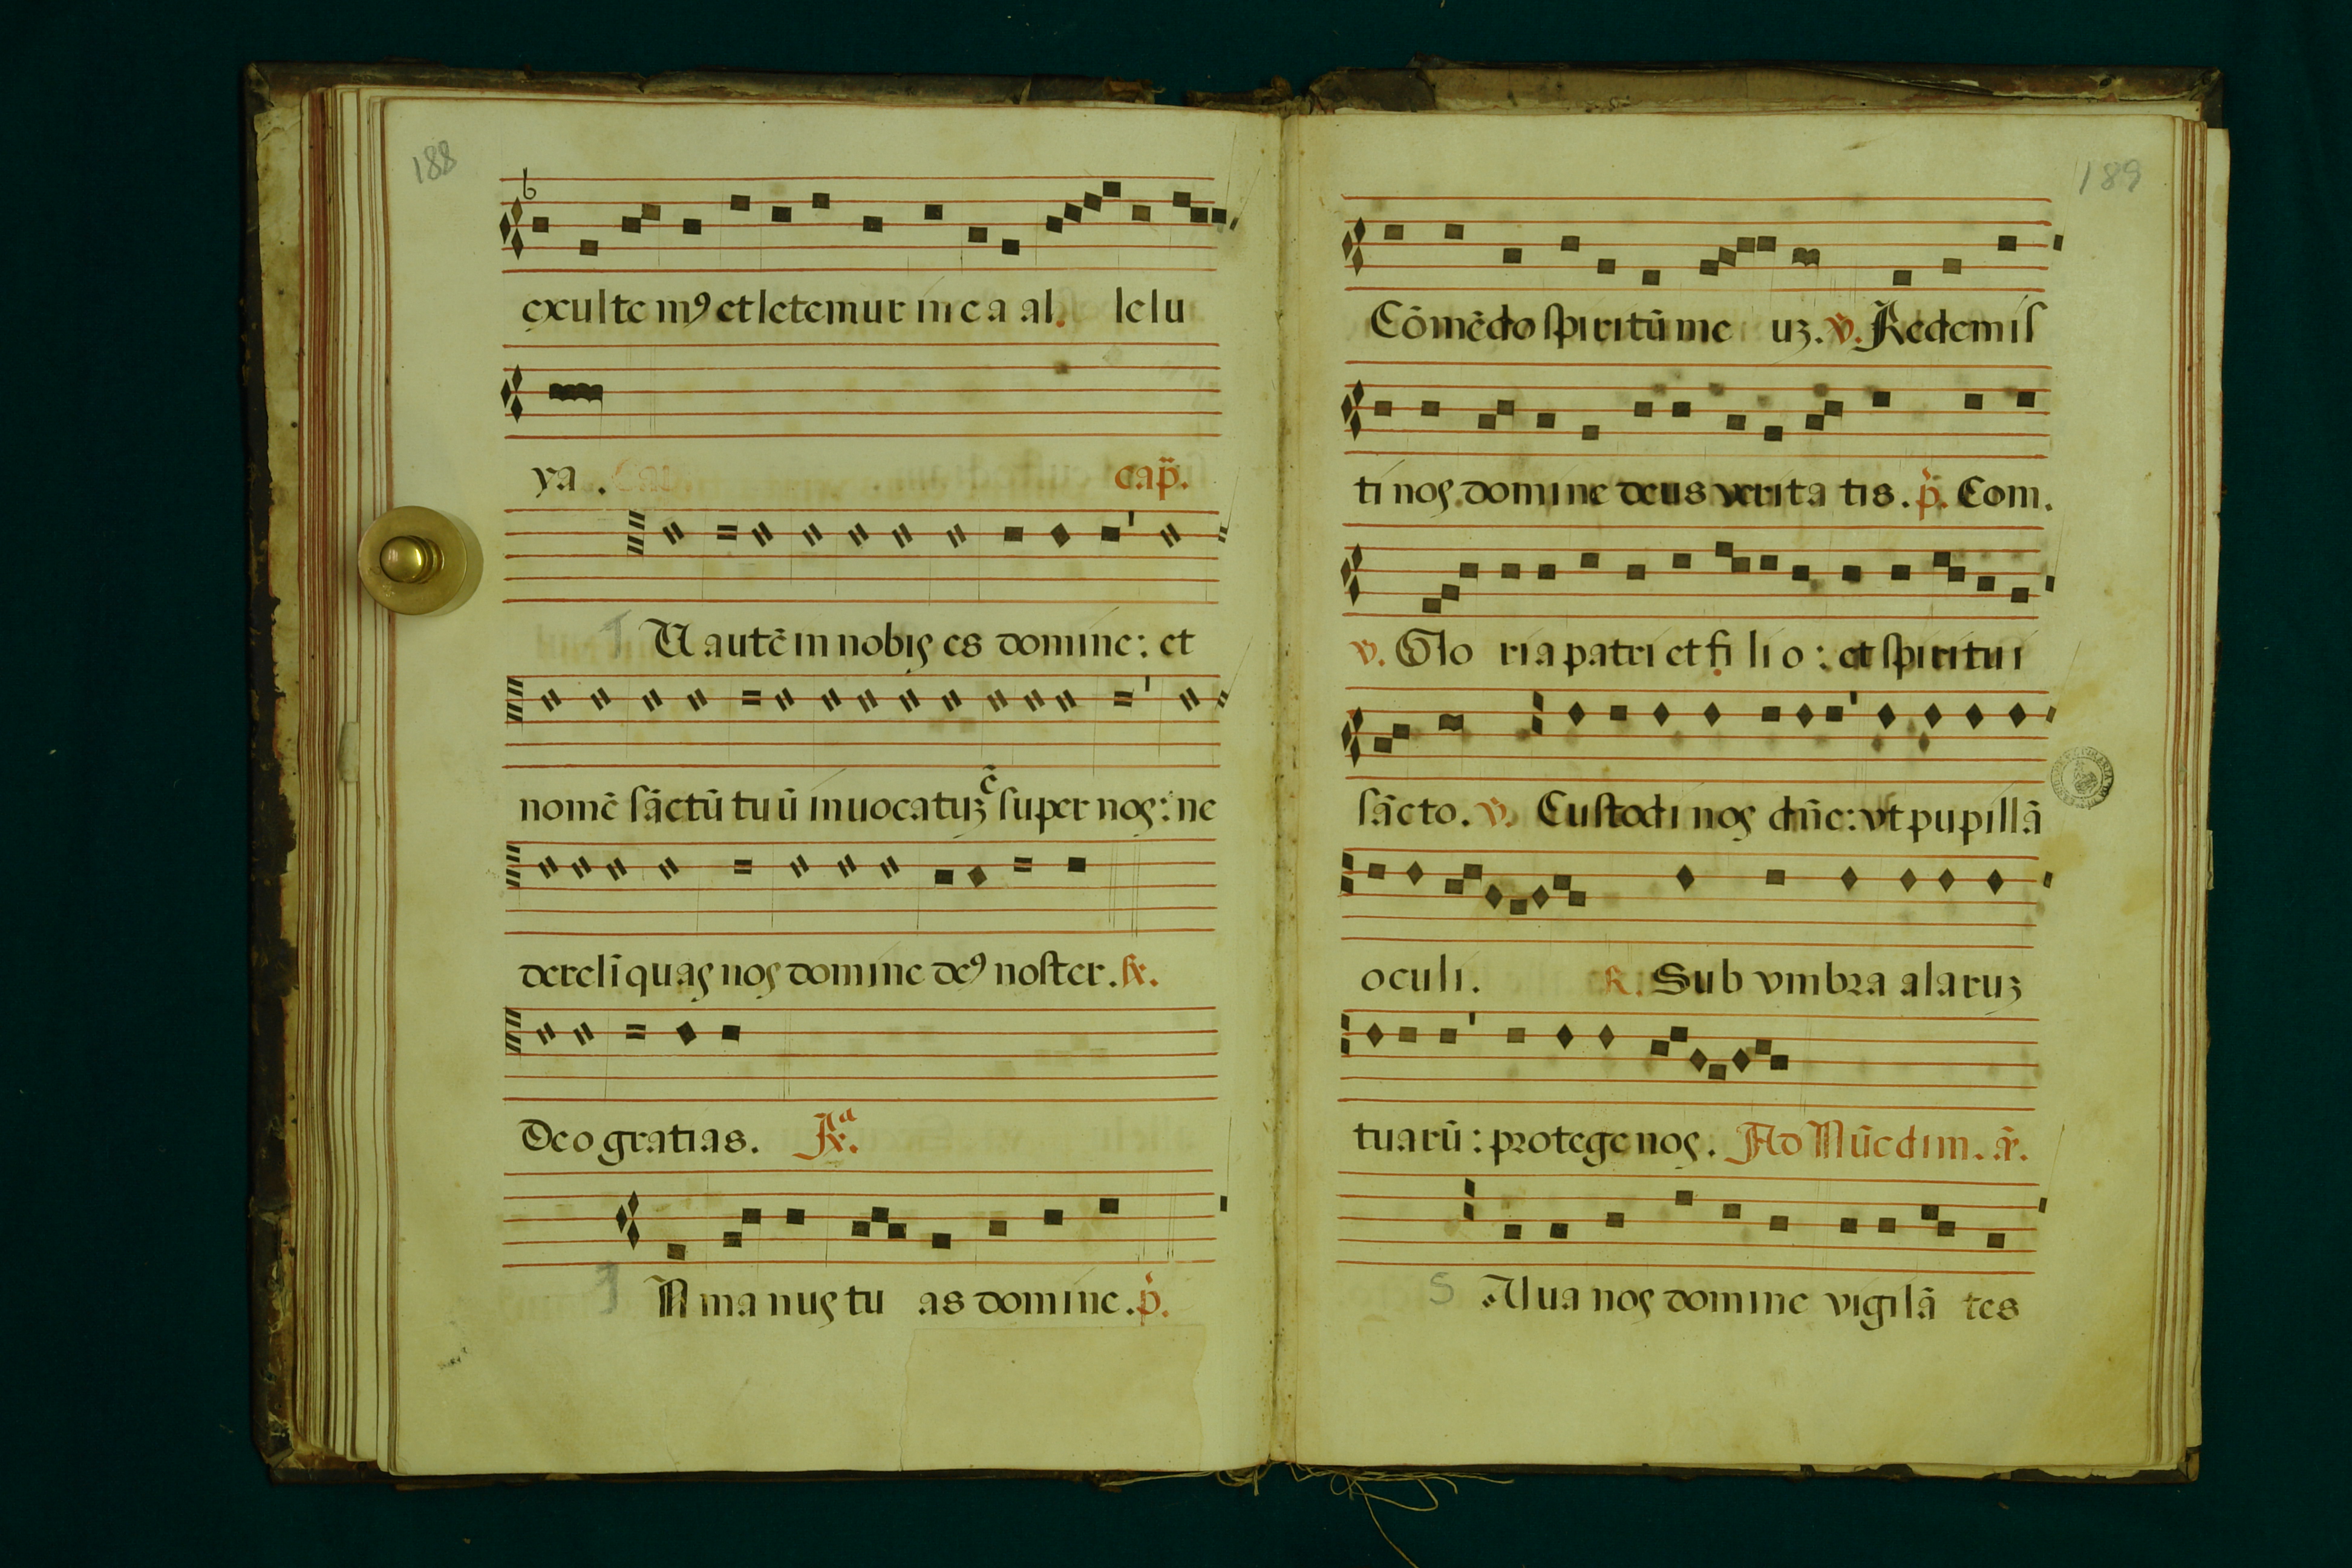 188
b
exultem⁹ et letemur in ea al. lelu
ya. cap̃.
T U autē in nobis es domine: et
nomē sāctū tuū inuocatuʒ c̃ super nos: ne
derelinquas nos domine de⁹ noster. ℟.
Deo gratias. ℟.ᵃ
I Ñ manus tu as domine. p̃.
189
Cōmēdo spiritū me uʒ. v̄. Redemis
ti nos domine deus verita tis. p̃. Com.
v. Glo ria patri et fi li o: et spiritui
sācto. v̄. Custodi nos dn̄e: vt pupillā
oculi. ℟. Sub vmbra alaruʒ
tuarū: protege nos. Ad Nūc dim. ā.
S Alua nos domine vigilā tes